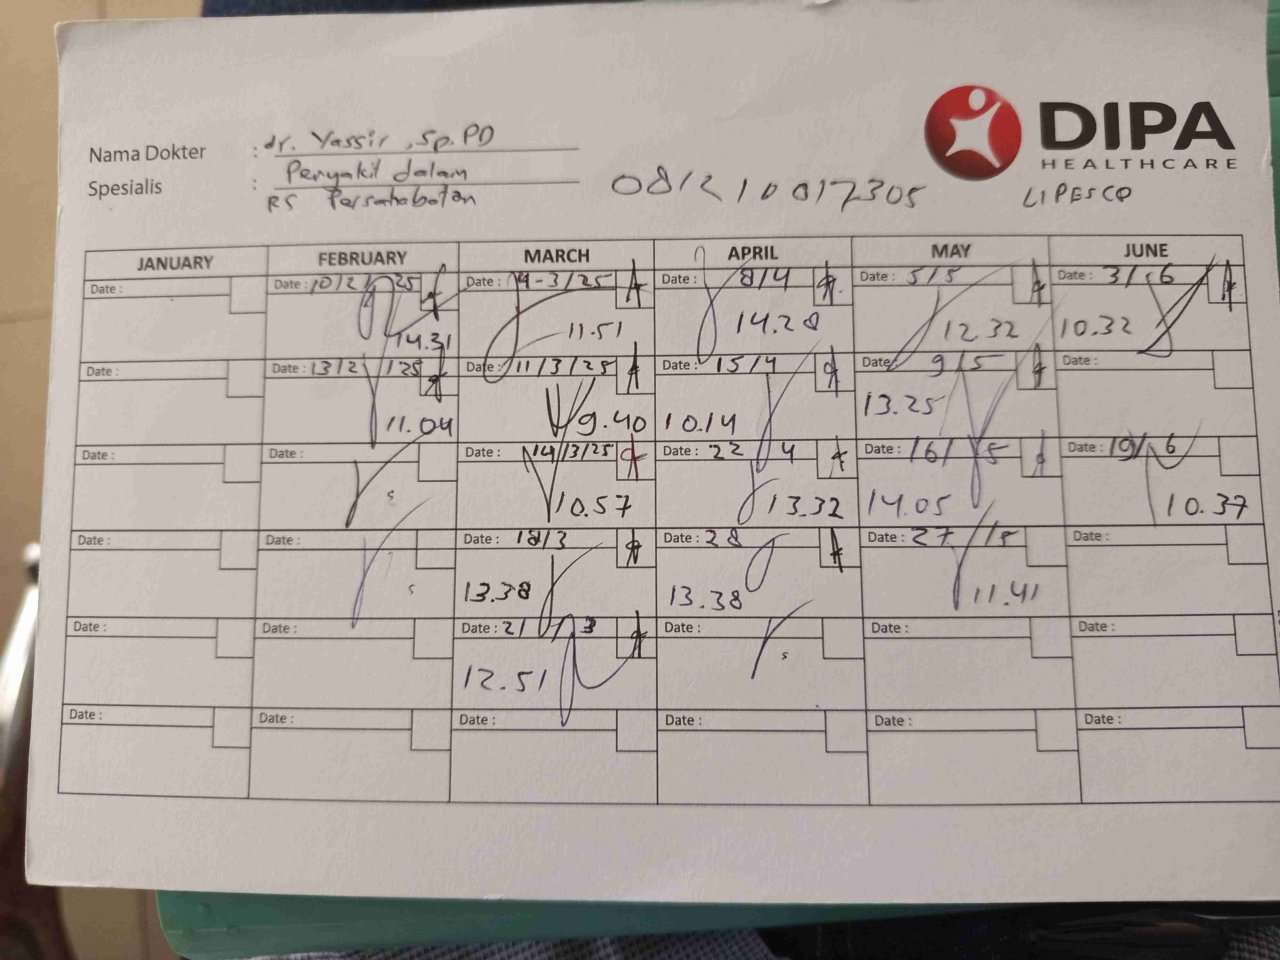 DIPA
HEALTHCARE
Nama Dokter : dr. Yassir, Sp.PD
Spesialis : Penyakit dalam
RS Persahabatan
081210017305
LIPESCO
JANUARY FEBRUARY MARCH APRIL MAY JUNE
Date : Date : 10/2/25 Date : 4-3/25 Date : 8/4 Date : 5/5 Date : 3/6
14.31 11.51 14.28 12.32 10.32
Date : Date : 13/2/25 Date : 11/3/25 Date : 15/4 Date : 9/5 Date :
11.04 9.40 10.14 13.25
Date : Date : Date : 14/3/25 Date : 22/4 Date : 16/5 Date : 19/6
s 10.57 13.32 14.05 10.37
Date : Date : Date : 18/3 Date : 28 Date : 27/5 Date :
s 13.38 13.38 11.41
Date : Date : Date : 21/3 Date : Date : Date :
12.51 s
Date : Date : Date : Date : Date : Date :